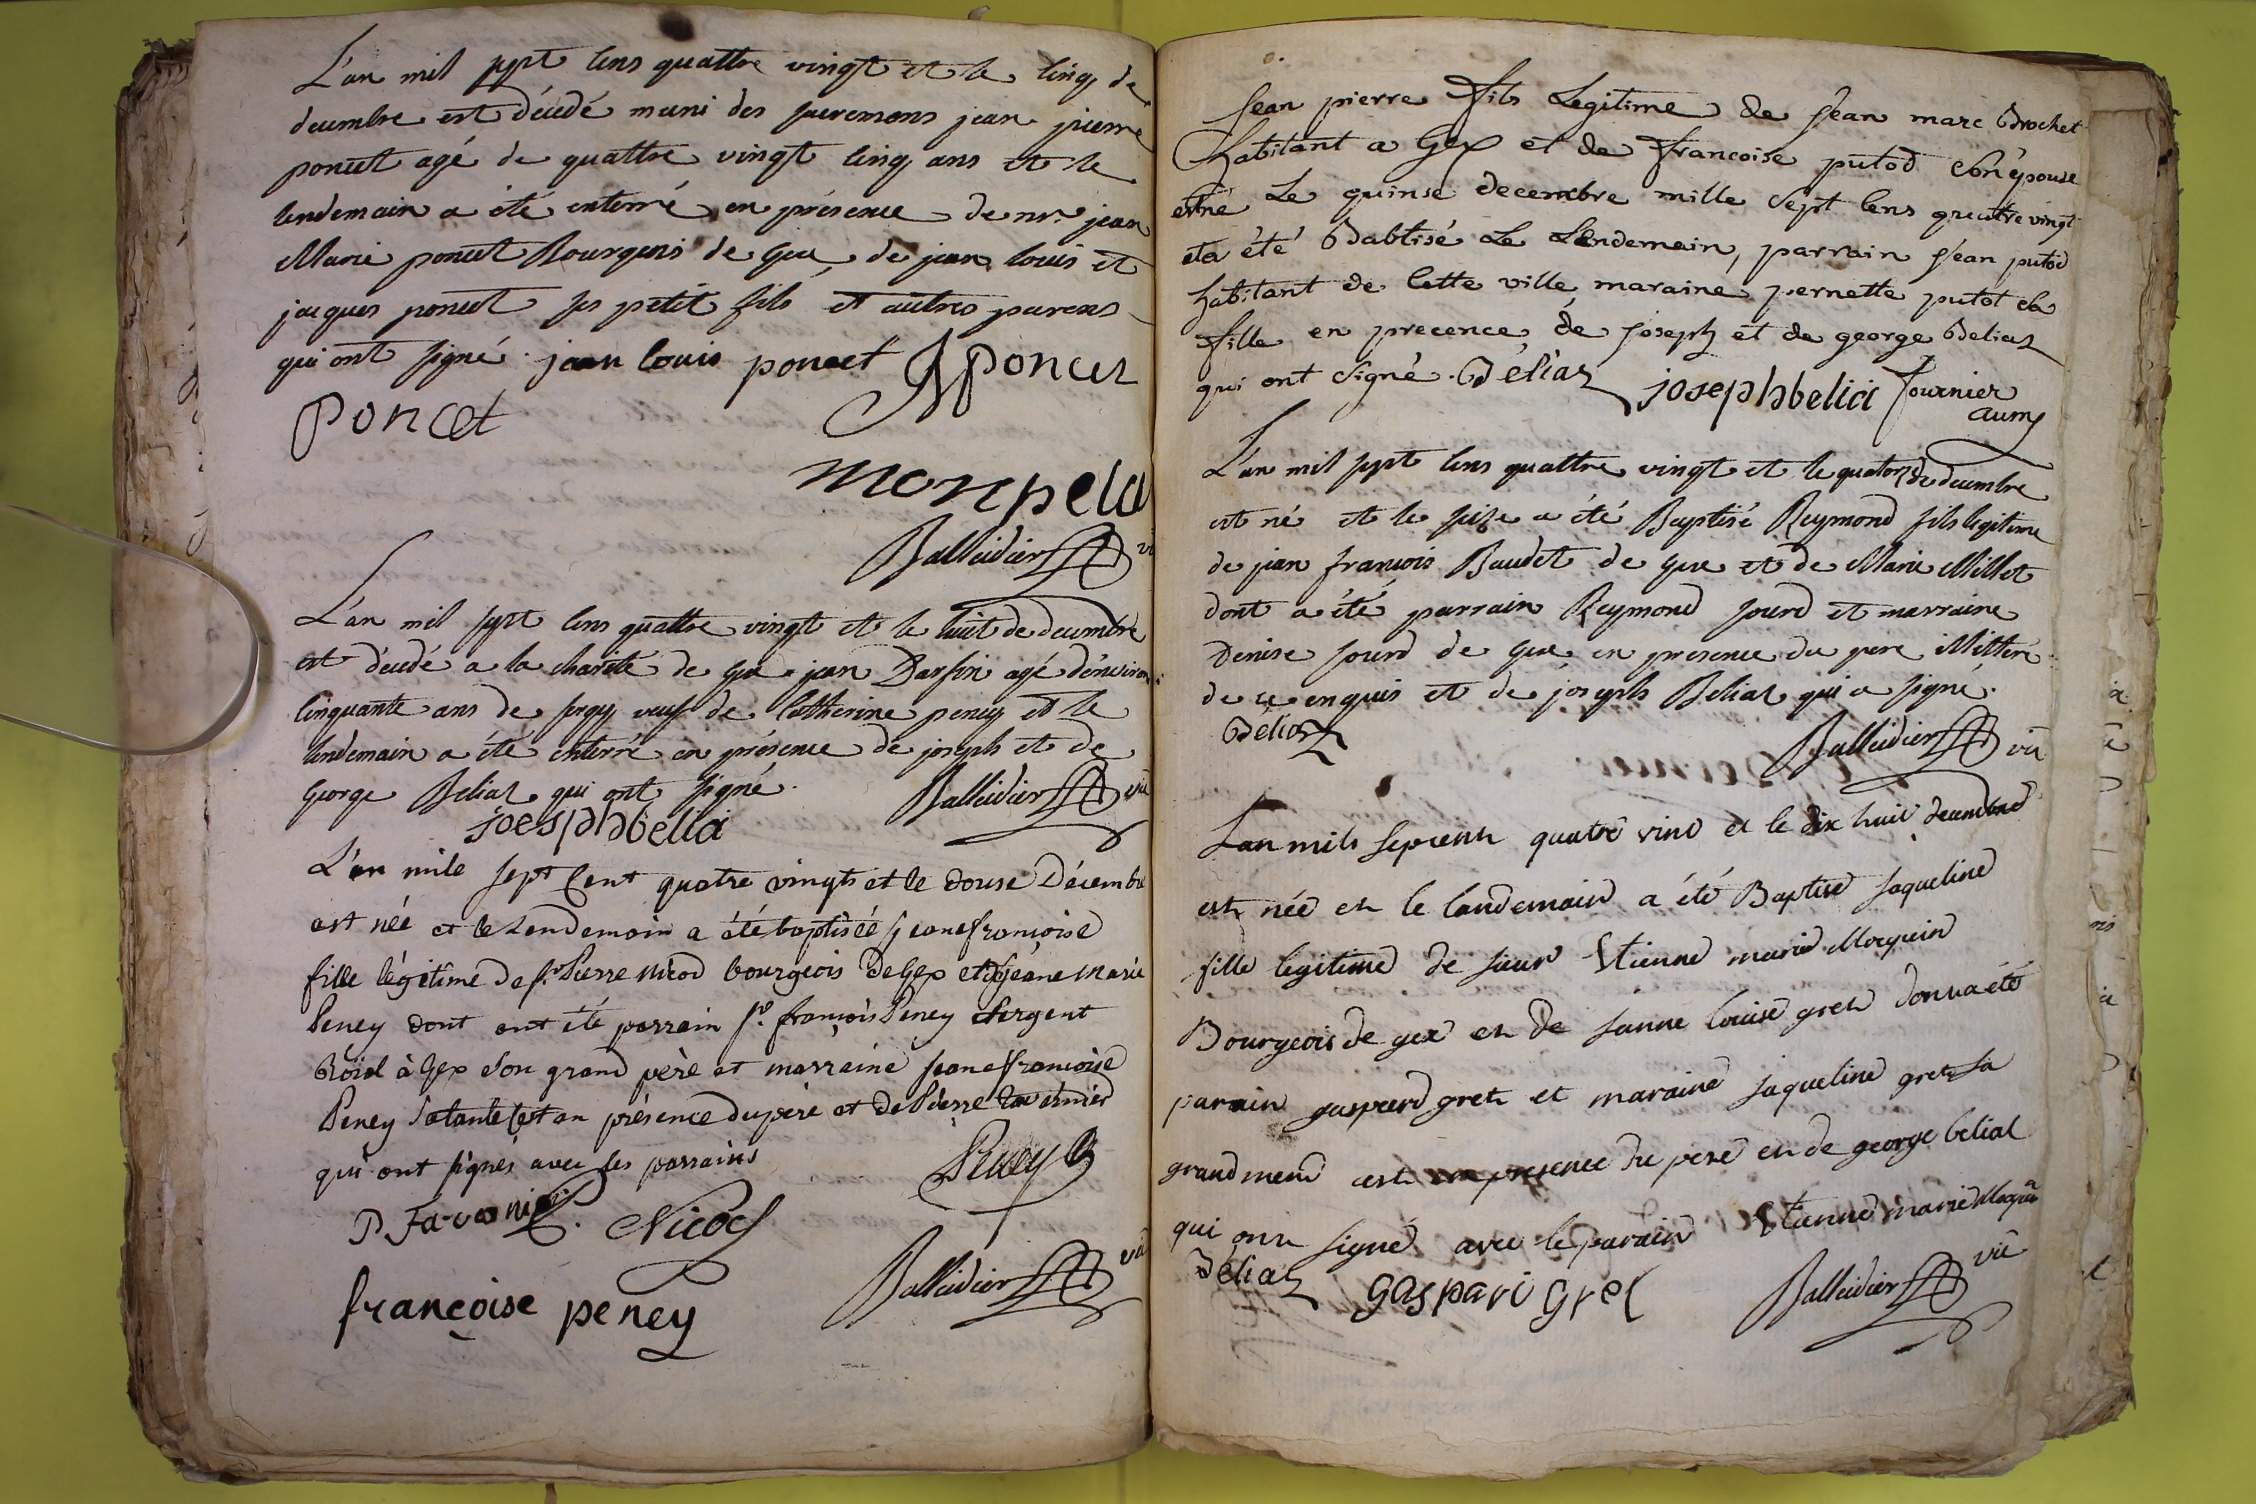 L'an mil sept cens quattre vingt et le cinq de
decembre est décédé muni des sacremens jean pierre
poncet agé de quattre vingt cinq ans et le
lendemain a été enterré en présence de mr. jean
Marie poncet Bourgeois de Gex, de jean louis et
jacques poncet ses petit fils et autres parens
qui ont signé. jean louis poncet JJ poncet
poncet
monpela
Balleidier vic
L'an mil sept cens quattre vingt et le huit de decembre
est décédé a la charité de gex jean Darfin agé d'environ
cinquante ans de sergy veuf de Catherine peney et le
lendemain a été enterré en présence de joseph et de
George Beliaz qui ont signé.
Balleidier vic
joesph belia
L'an mile sept Cent quatre vingts et le douse Décembre
est née et le Lendemain a été baptisée jeane françoise
fille légitime de sr. Pierre Nicod bourgeois de Gex et de jeane Marie
Peney dont ont été parrain sr. françois Peney Sergent
Roïal à Gex son grand père et marraine jeane françoise
Peney sa tante et en présence du père et de Pierre tavernier
qui ont signés avec les parrains
Peney
P. Favernier Nicod
Balleidier vic
françoise peney
Jean pierre fils Legitime de Jean marc Brochet
habitant a Gex et de francoise putod son épouse
est né Le quinse decembre mille sept Cens quattre vingt
et a été Babtisé Le Lendemain, parrain Jean putod
habitant de Cette ville, maraine pernette putot sa
fille en precence de joseph et de george Beliaz
qui ont signé. Béliaz joseph belia fournier
aum
L'an mil sept cens quattre vingt et le quatorze de decembre
est né et le seize a été Baptisé Reymond fils legitime
de jean françois Baudet de gex et de Marie Millet
dont a été parrain Reymond jourd et marraine
Denise jourd de Gex en presence du pere illitteré
de ce enquis et de joseph Beliaz qui a signé.
Béliaz
Balleidier vic
Lan mils septcent quatre vint et le dix huit decembre
est née et le landemain a été Baptisé jaqueline
fille legitime de sieur Etienne marie Moquin
Bourgeois de gex et de janne louise gret dont a été
parain gasperd gret et maraine jaqueline gret sa
grand mere est en presence du pere et de george belial
qui ont signé avec le parain Etienne marie Moquin
Béliaz gaspari gret
Balleidier vic